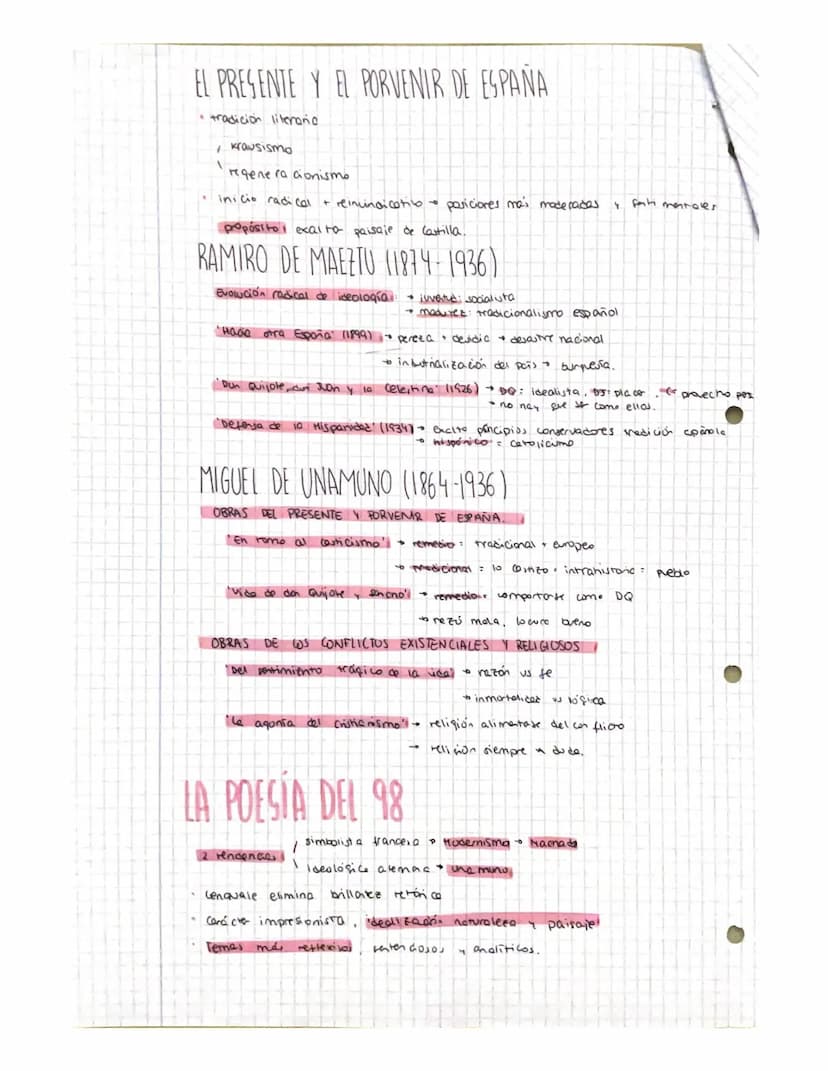 EL PRESENTE Y EL PORVENIR DE ESPAÑA
• tradición literaria
krausismo
regeneracionismo
• inicio radical + reivindicativo → posiciones más moderadas y
propósito: exaltar paisaje de Castilla.
RAMIRO DE MAEZTU (1874-1936)
Evolución radical de ideología: → juventud: socialista
→ madurez: tradicionalismo español
'Hacia otra España' (1899) → pereza + desidia → desastre nacional
→ industrialización del país → burguesía.
'Don Quijote, don Juan y la Celestina' (1926) → DQ: idealista, DJ: placer, provecho
→ no hay que ser como ellos.
'Defensa de la Hispanidad' (1934) → exalta principios conservadores tradición española
→ hispánico = catolicismo
MIGUEL DE UNAMUNO (1864-1936)
OBRAS DEL PRESENTE Y PORVENIR DE ESPAÑA.
'En torno al casticismo' → remedio: tradicional + europeo
→ tradicional = lo intrahistoria = pueblo
'Vida de don Quijote y Sancho' → remedio: comportarse como DQ
→ razón mala, locura buena
OBRAS DE LOS CONFLICTOS EXISTENCIALES Y RELIGIOSOS
'Del sentimiento trágico de la vida' → razón vs fe
→ inmortalidad vs lógica
'La agonía del cristianismo' → religión alimentase del conflicto
→ religión siempre duda.
LA POESÍA DEL 98
2 tendencias simbolista francesa → Modernismo → Machado
ideológica alemana → unamuno
• Lenguaje elimina brillantez retórica
• Carácter impresionista, idealización naturaleza y paisaje
• Temas más reflexivos, sentenciosos y analíticos.